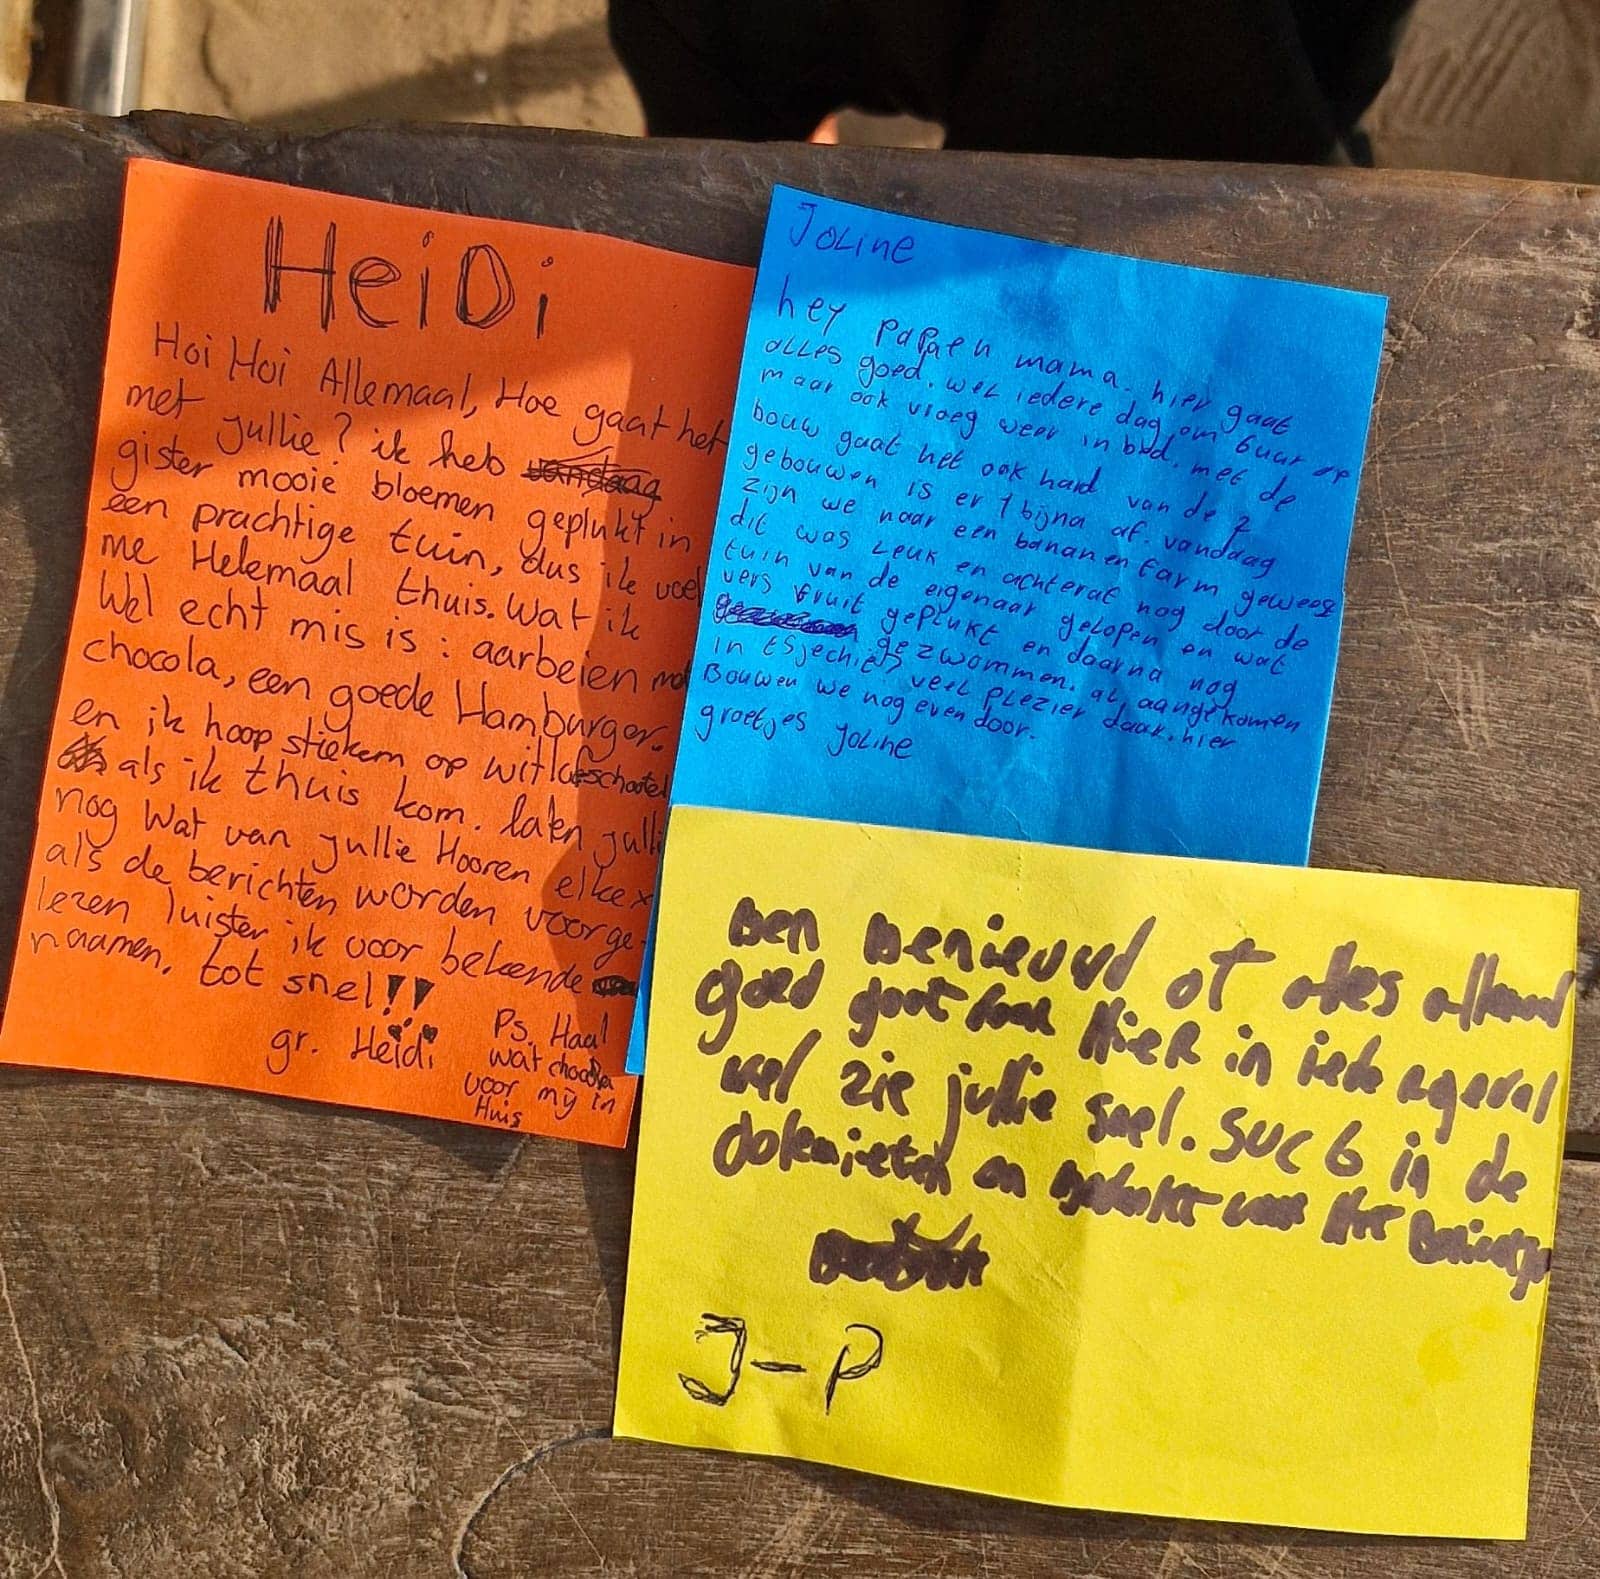 HeiDi
Hoi Hoi Allemaal, Hoe gaat het
met jullie? ik heb vandaag
gister mooie bloemen geplukt in
een prachtige tuin, dus ik voel
me Helemaal thuis. Wat ik
Wel echt mis is: aarbeien met
chocola, een goede Hamburger.
en ik hoop stiekem op
als ik thuis kom. laten jullie
nog Wat van jullie Hooren elke x
als de berichten worden voorge-
lezen luister ik voor bekende
naamen. tot snel!!
gr. Heidi
Ps. Haal
wat chocola
voor mij in
Huis
JoLine
hey papa en mama. hier gaat
alles goed. wel iedere dag om 6uur op
maar ook vroeg weer in bed. met de
bouw gaat het ook hard van de 2
gebouwen is er 1 bijna af. vandaag
zijn we naar een bananen farm geweest
dit was Leuk en achteraf nog door de
tuin van de eigenaar gelopen en wat
vers fruit geplukt en daarna nog
gezwommen. al aangekomen
in tsjechië, veel plezier daar. hier
Bouwen we nog even door.
groetjes JoLine
Ben Benieuwd of alles allemaal
goed gaat daar Hier in ieder ageval
wel zie jullie snel. SUC6 in de
dolemieten en
J-P